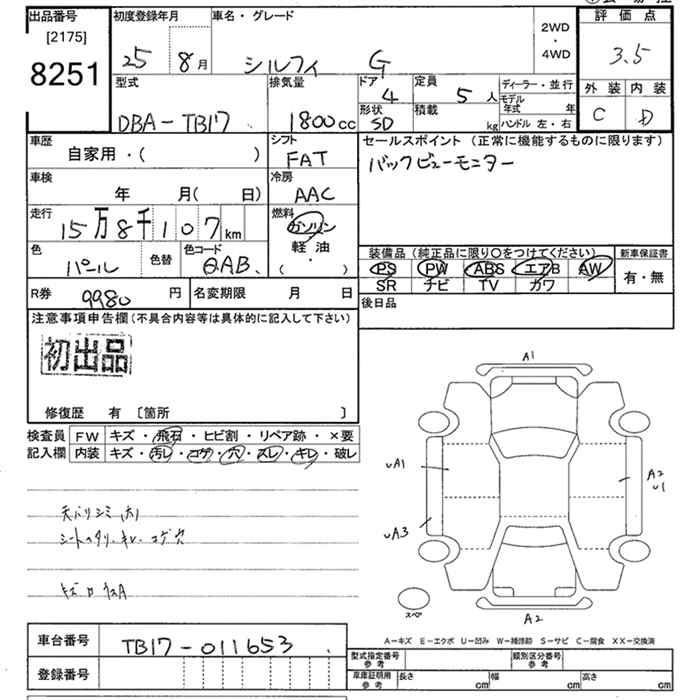 出品番号 初度登録年月 車名・グレード 2WD・4WD 評価点
[2175] 25 8月 シルフィ G 3.5
8251
型式 排気量 ドア 4 定員 5人 ディーラー・並行 外装 内装
DBA-TB17 1800cc 形状 SD 積載 kg モデル年式 年 C D
ハンドル 左・右
車歴 シフト セールスポイント(正常に機能するものに限ります)
自家用・( ) FAT バックビューモニター
車検 冷房
年 月( 日) AAC
走行 燃料
15万8千107km ガソリン
色 色替 色コード 軽油 装備品(純正品に限り○をつけてください) 新車保証書
パール QAB. ( ・ ) PS PW ABS エアB AW 有・無
SR ナビ TV カワ
R券 9980円 名変期限 月 日 後日品
注意事項申告欄(不具合内容等は具体的に記入して下さい)
初出品
修復歴 有 〔箇所 〕
検査員 FW キズ・飛石・ヒビ割・リペア跡・×要
記入欄 内装 キズ・汚レ・コゲ・穴・スレ・キレ・破レ
A1
UA1
A2
U1
UA3
A2
スペア
天バリシミ(大)
シートヘタリ・キレ・コゲ穴
A-キズ E-エクボ U-凹み W-補修跡 S-サビ C-腐食 XX-交換済
車台番号 TB17-011653
登録番号
型式指定番号 参考 類別区分番号 参考
車庫証明用 参考 長さ cm 幅 cm 高さ cm